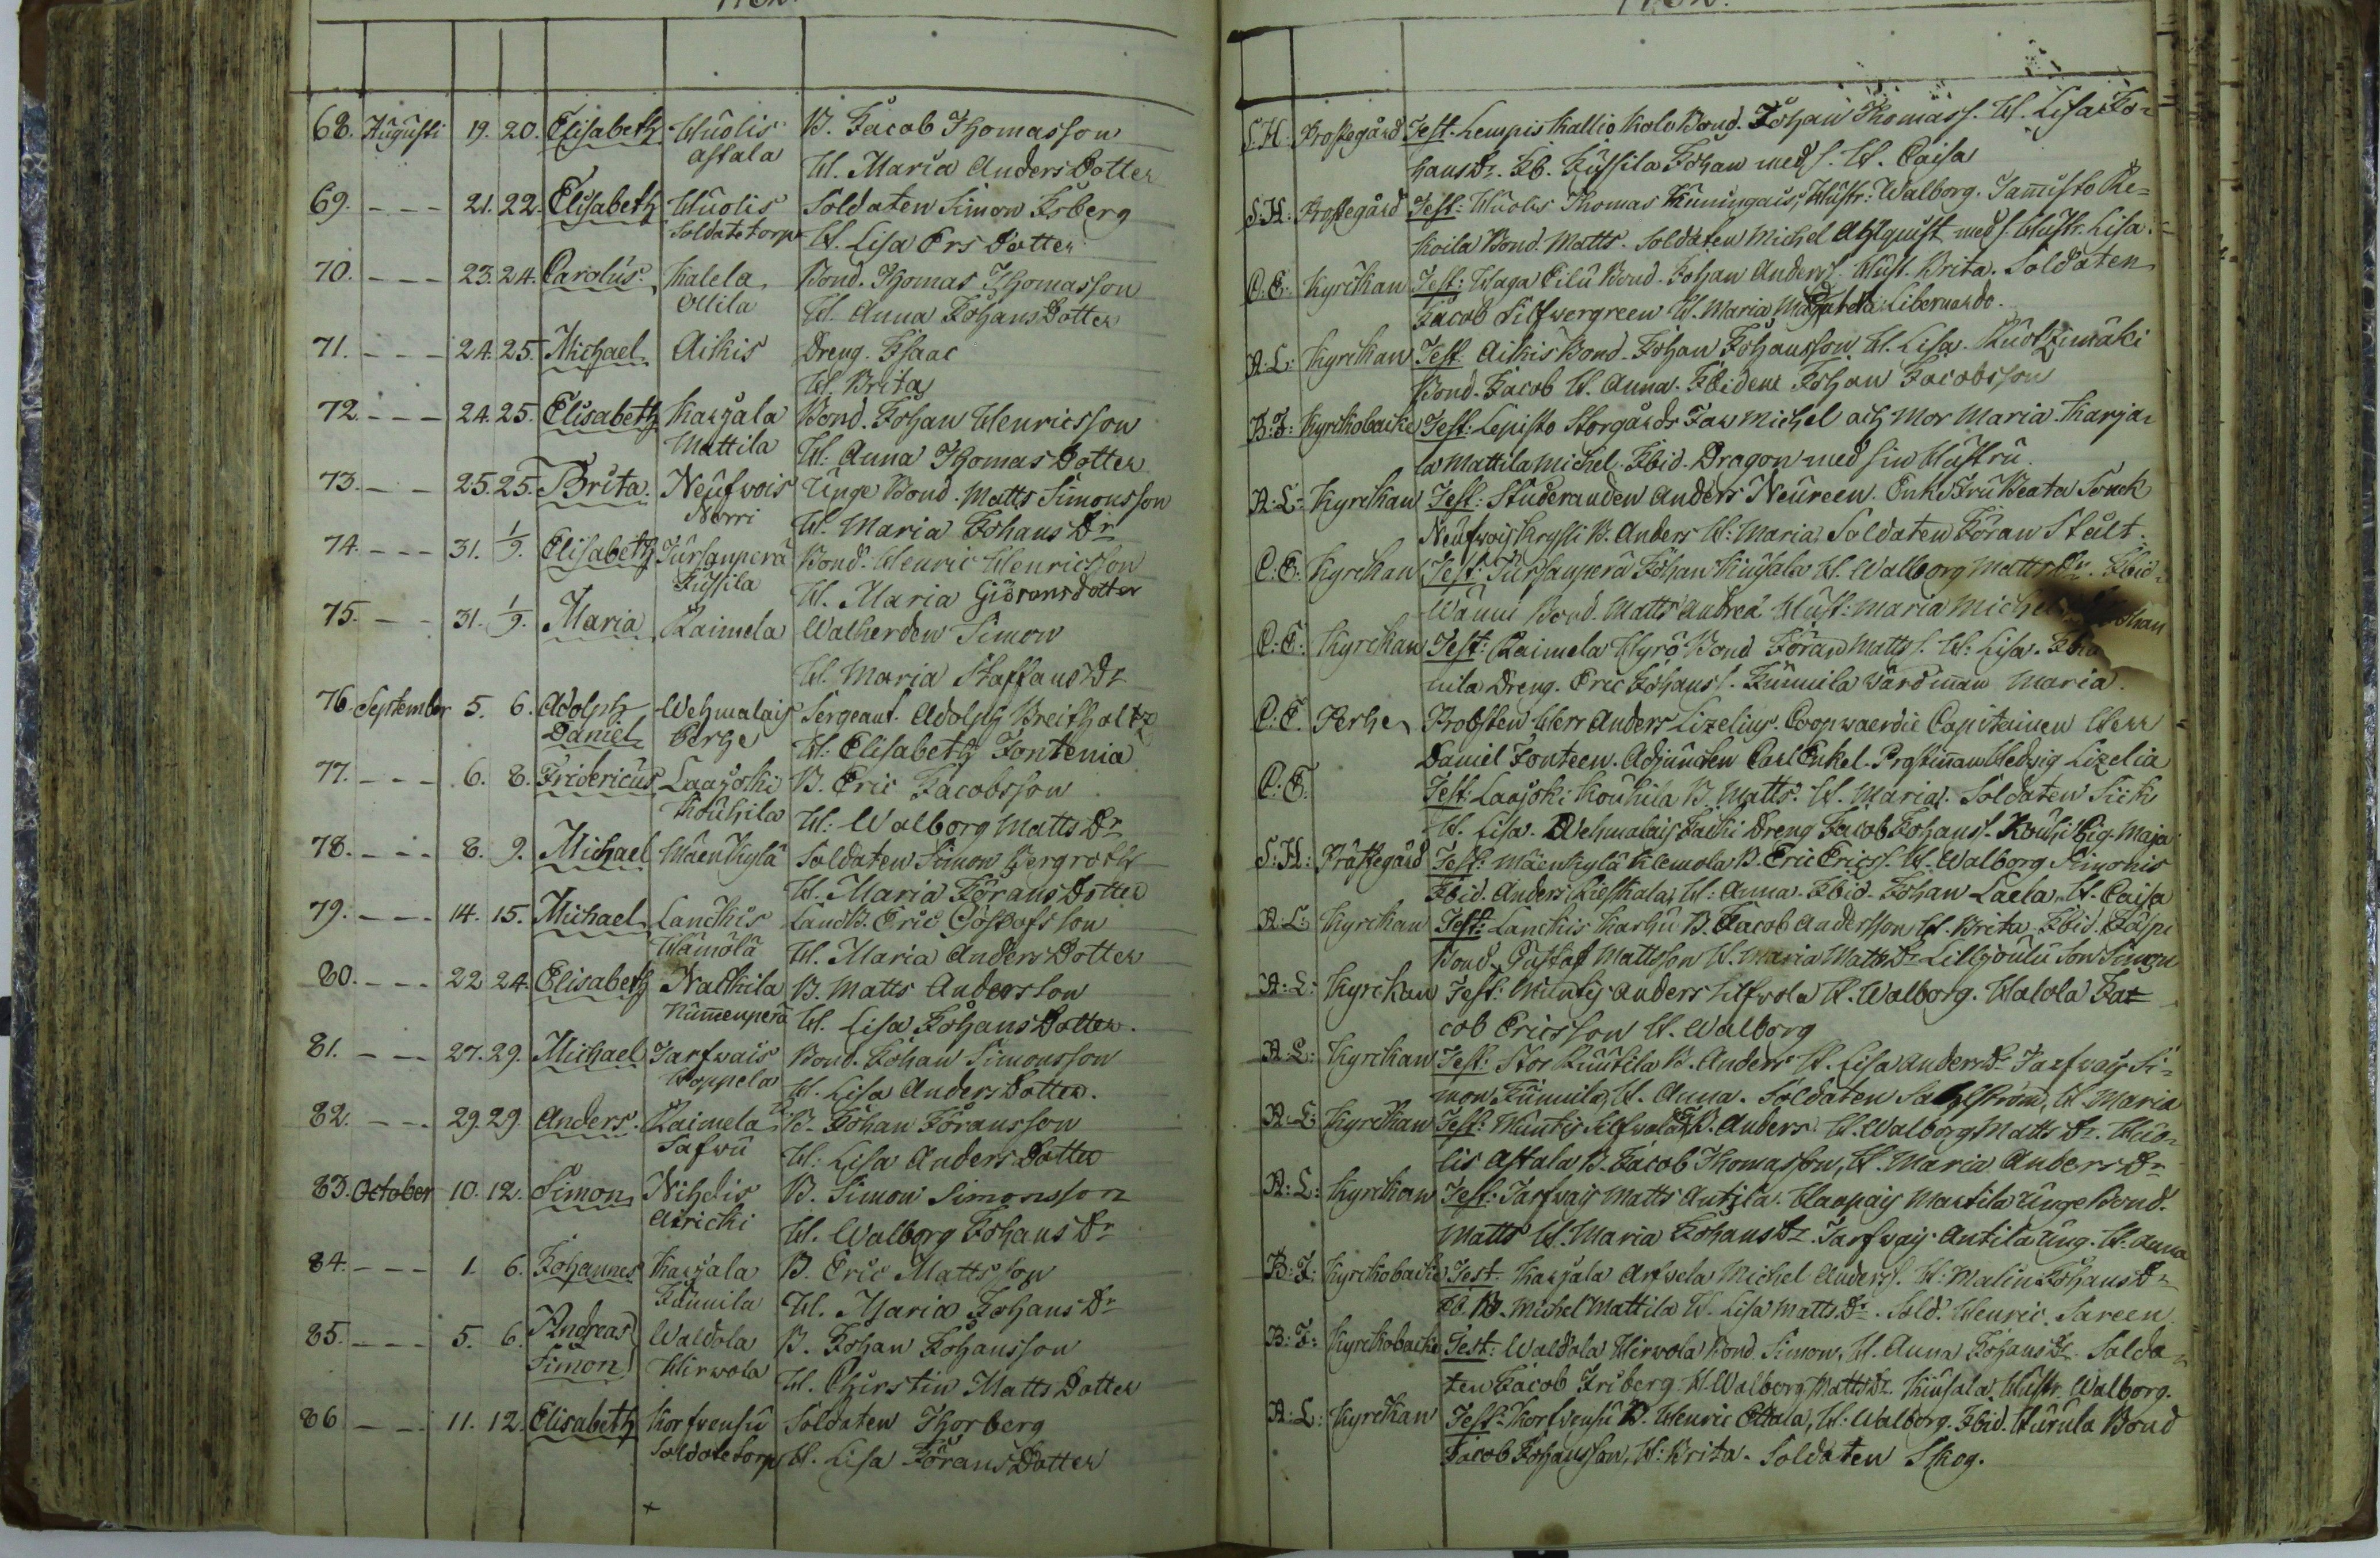 68. Augusti 19. 20. Elisabeth Wuolis B. Jacob Thomasson
astala H. Maria Anders Dotter
69. - - - 21. 22. Elisabeth Wuolis Soldaten Simon Isberg
Soldatetorp H. Lisa Ers Dotter
70. - - - 23. 24. Carolus Kalela Bond. Thomas Thomasson
Ollila H. Anna Johans Dotter
71. - - - 24. 25. Michael Aikis Dreng. Isaac
H. Brita
72. - - - 24. 25. Elisabeth Karjala Bond. Johan Henricsson
Mattila H. Anna Thomas Dotter
73. - - 25. 25. Brita Neufwois Unge Bond. Matts Simonsson
Norri H. Maria Johans Dr
74. - - - 31. 1/9. Elisabeth Tursanperä Bond. Henric Henricsson
Jussila H. Maria Giörensdotter
75. - - 31. 1/9. Maria Raimela Walherden Simon
H. Maria Staffans Dr
76. September 5. 6. Adolph Wehmalais Sergeant. Adolph Breitholtz
Daniel berge H. Elisabeth Fontenia
77. - - - 6. 8. Fridericus Laajoki B. Eric Jacobsson
Kouhila H. Walborg Matts Dr
78. - - - 8. 9. Michael Mäenkylä Soldaten Simon Bergroth
H. Maria Jörans Dotter
79. - - - 14. 15. Michael Lanckis Landb. Eric Göstafsson
Hämölä H. Maria Anders Dotter
80. - - - 22 24. Elisabeth Nackila B. Matts Andersson
Nummenperä H. Lisa Johans Dotter.
81. - - - 27. 29. Michael Tarfwais Bond. Johan Simonsson
Hoppela H. Lisa Anders Dotter.
82. - - - 29. 29. Anders. Raimela B. Johan Jöransson
Safwu H. Lisa Anders Dotter
83. October 10. 12. Simon Nihdis B. Simon Simonsson
Airicki H. Walborg Johans Dr
84. - - - 1. 6. Johannes Karjala B. Eric Mattsson
Junnila H. Maria Johans Dr
85. - - - 5. 6. Andreas Waldola B. Johan Johansson
Simon Hirwola H. Chirstin Matts Dotter
86 - - - 11. 12. Elisabeth Korfvensu Soldaten Thorberg
Soldatetorp H. Lisa Jörans Dotter
S. H. Prostegård Test. Lempis Kallio Kolo Bond. Johan Thomass. H. Lisa Jo-
hans Dr. Ib. Jussila Johan meds. H. Caisa
S. H. Prostegård Test: Wuolis Thomas Kuningais, Hustr: Walborg. Tammisto Re-
koila Bond. Matts. Soldaten Michel Ahlquist meds. Hustr. Lisa.
C. E. Kyrckan Test: Waga Eilu Bond. Johan Anders. Hust. Brita. Soldaten
Jacob Silfwergreen H. Maria Libernardo.
A. L: Kyrckan Test: Aikis Bond. Johan Johansson H. Lisa.
Bond. Jacob H. Anna. Ibidem Johan Jacobsson
B: F: Kyrckobacke Test: Lepisto Storgårds Far Michel och Mor Maria. Karja-
la Mattila Michel. Ibid. Dragon med sin Hustru.
A. L: Kyrckan Test: Studeranden Anders Neureen. Enke Fru Beata
Neufwois Krysti B. Anders H: Maria. Soldaten Jöran Stult.
C: E: Kyrckan Test: Tursanperä Johan H. Walborg Matts Dr. Ibid.
Wänni Bond. Matts Andreæ Hust: Maria
C: E: Kyrckan Test: Raimela Hyrö Bond Jöran Matts s. H: Lisa.
nila Dreng. Eric Johans s. Junnila Värdinnan Maria.
C. E. Berge Probsten Herr Anders Lizelius. Coopwaerdie Capitainen Herr
Daniel Fonteen. Adjuncten Carl Enkel. Prostinnan Hedvig Lizelia
C. E. Test: Laajoki Kouhila B. Matts. H. Maria. Soldaten Siik
H. Lisa. Wehmalais Dreng Jacob Johans s. Pig. Maja
S: H: Prästegård Test: Mäenkylä Klemola B. Eric Erics s. H. Walborg Simonis
Ibid. Anders H: Anna. Ibid. Johan Laela. H. Caisa
A. L: Kyrckan Test: Lanckis Karhu B. Jacob Andersson H. Brita. Ibid.
Bond. Gustaf Mattsson H. Maria Matts Dr Lilljoulu Son Simon
A: L: Kyrckan Test: Anders H. Walborg. Halola Ja-
cob Ericsson H. Walborg
A: L: Kyrckan Test: Stor B. Anders H. Lisa Anders Dr Tarfwais Si-
mon Junnila, H. Anna. Soldaten Sahlström, H Maria
A: L: Kyrckan Test: B. Anders H. Walborg Matts Dr. Wuo-
lis Astala B. Jacob Thomasson, H. Maria Anders Dr
A: L: Kyrckan Test: Tarfwais Matts Antila. Haapais Martila Unge Bond.
Matts H. Maria Johans Dr. Tarfwais Antila Ung. H. Anna
B: F: Kyrckobacke Test. Karjala Arfwela Michel Anders s. H: Malin Johans Dr
Ib. B. Michel Mattila H. Lisa Matts Dr. Sold. Henric. Sareen
B: F: Kyrckobacke Test: Waldola Hirwola Bond Simon. H. Anna Johans Dr. Solda-
ten Jacob Friberg H. Walborg Matts Dr. Hustr. Walborg.
A: L: Kyrckan Test: Korfvensu B. Henric Ollala, H: Walborg. Ibid. Hurula Bond
Jacob Johansson, H: Brita. Soldaten Skog.